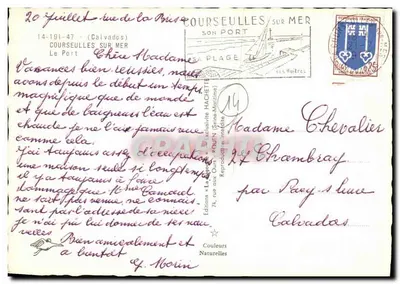 20 juillet rue de la
14-101-47 - (Calvados)
COURSEULLES SUR MER
Le Port
COURSEULLES SUR MER
SON PORT
PLAGE
SES HUÎTRES
Chère Madame
Vacances bien réussies, nous
avons depuis le début un temps
magnifique que de monde
et que de baigneurs l'eau est
chaude je ne l'ai jamais vue
comme cela.
J'ai toujours assez d'occupations
une maison seule si longtemps
il y a toujours à faire
dommage que Mme
soit pas venue, ne connais-
sant pas l'adresse de sa nièce
je n'ai pu lui donner de ses nou
velles
Bien amicalement et
à bientôt
G. Morin
14
Couleurs
Naturelles
Madame Chevalier
27 Chambray
par Pacy s/ Eure
Calvados